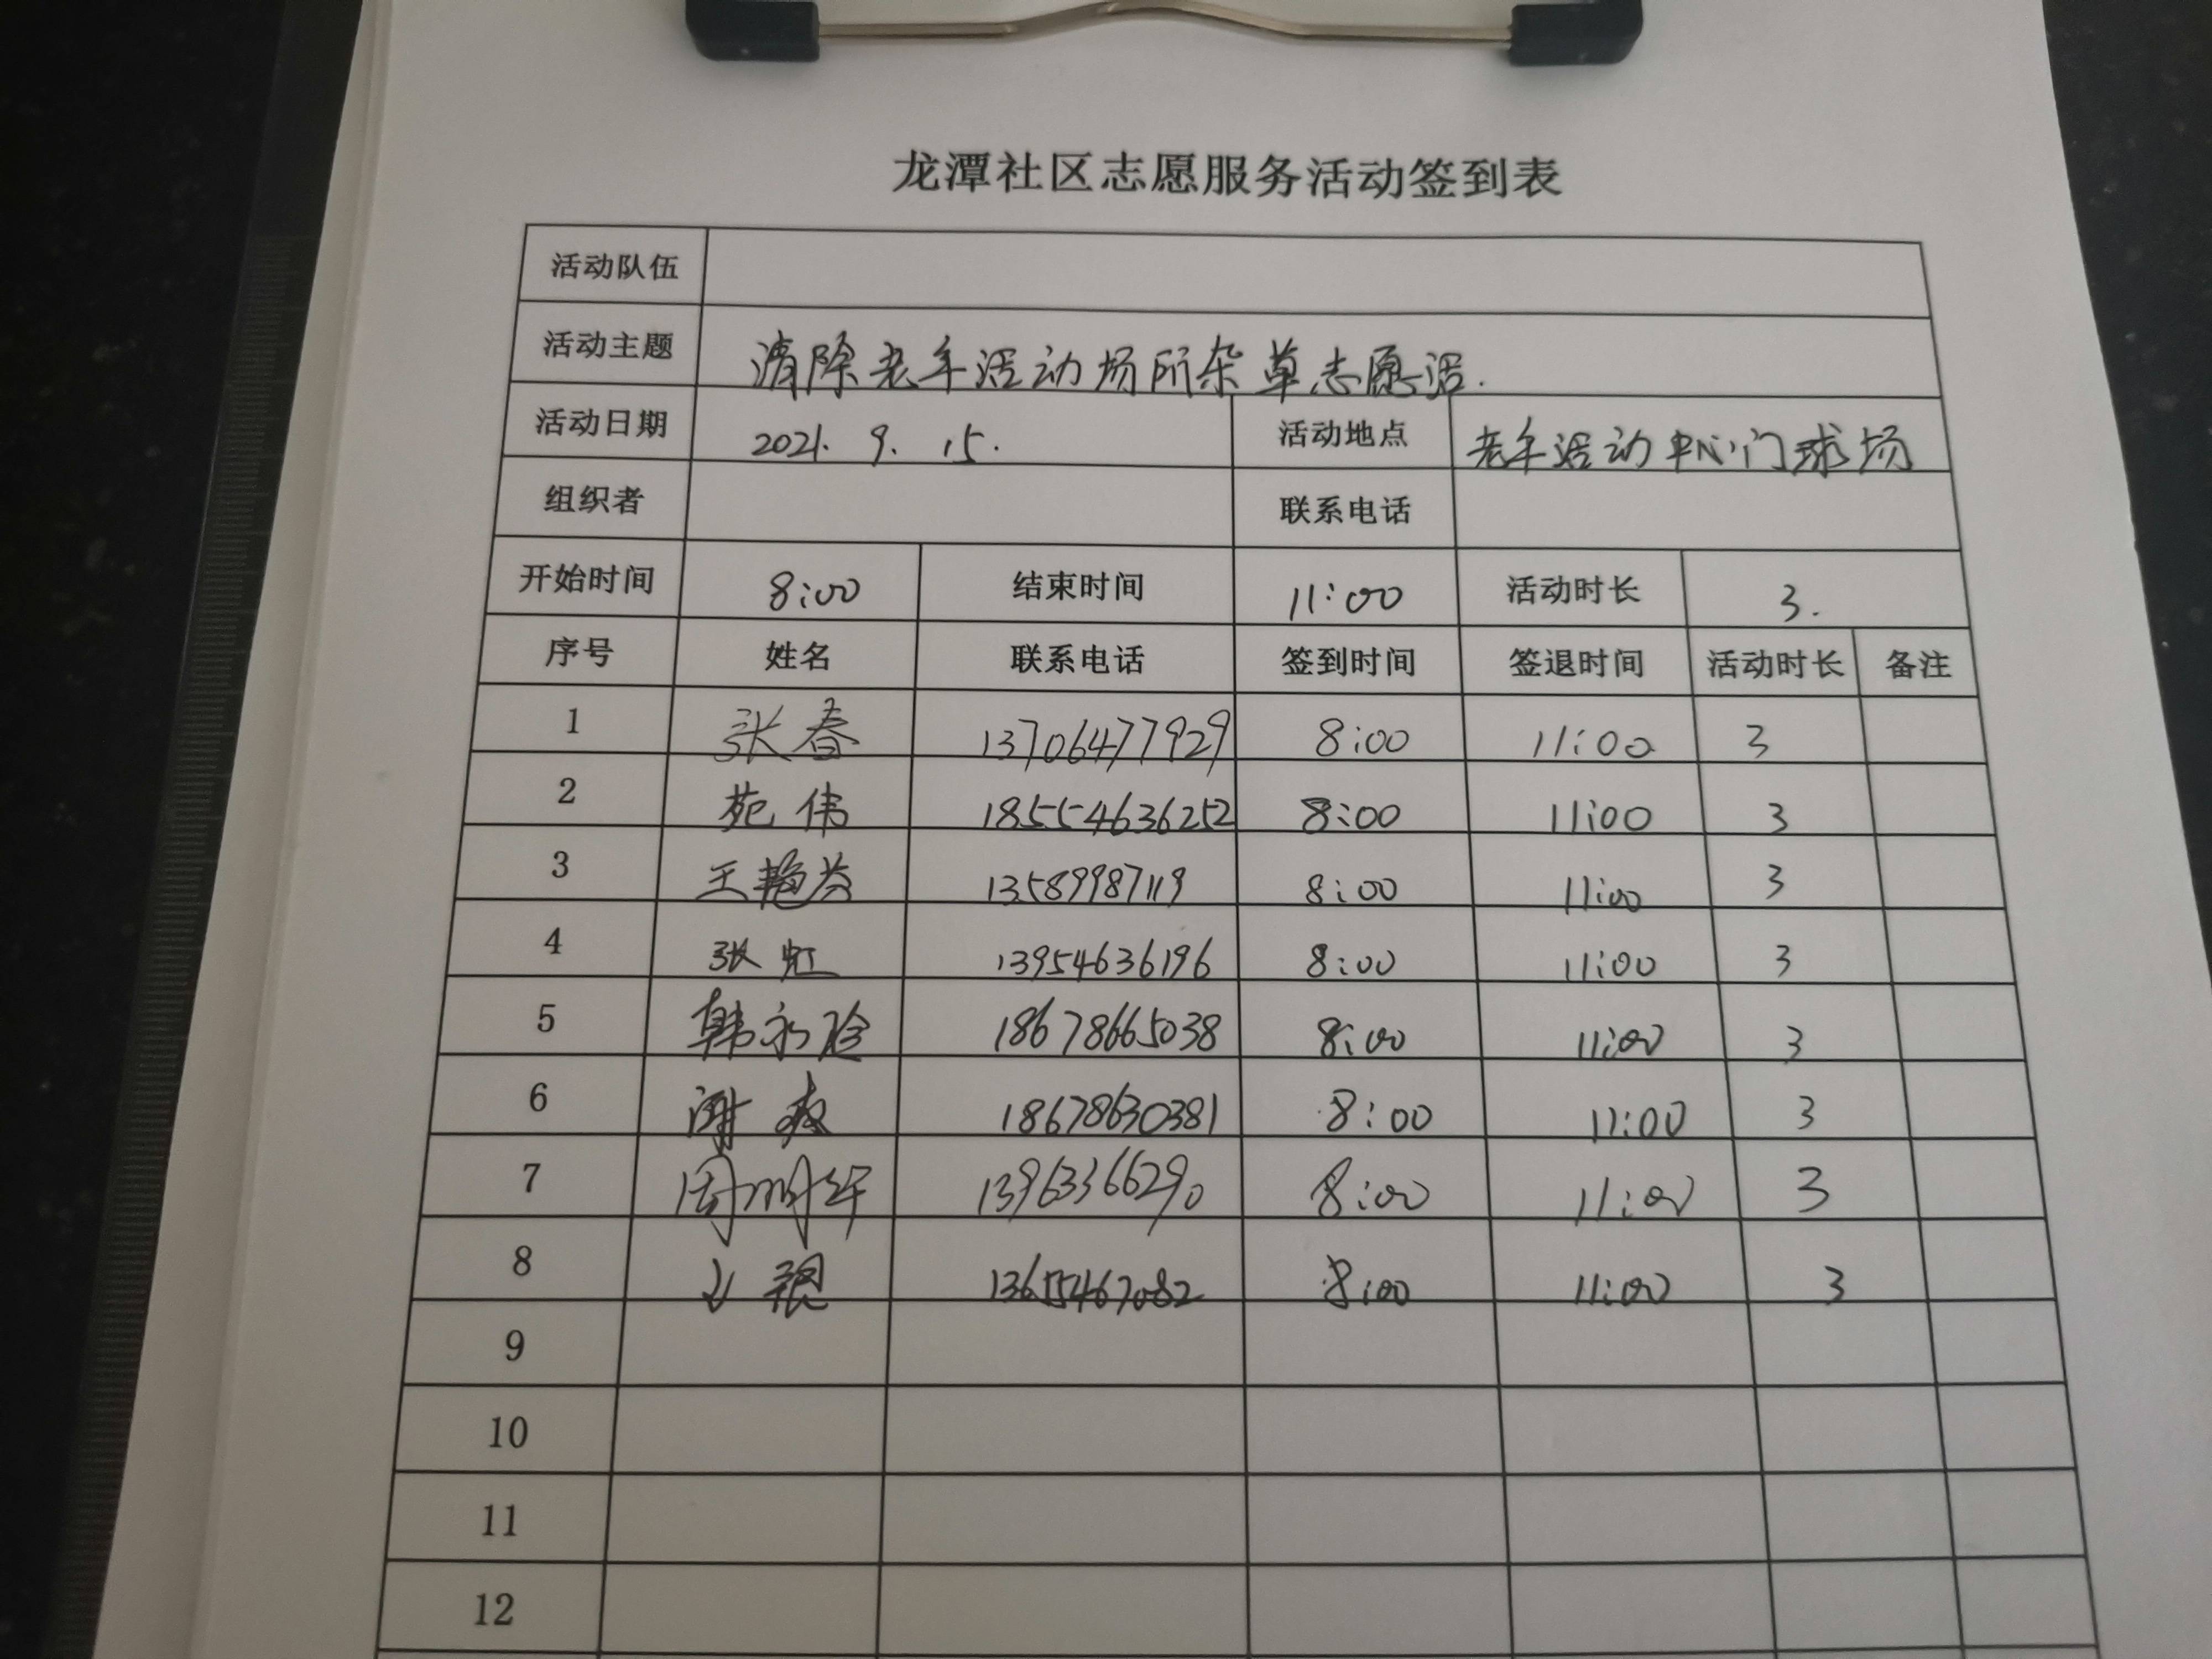 龙潭社区志愿服务活动签到表
活动队伍
活动主题 清除老年活动场所杂草志愿活.
活动日期 2021. 9. 15. 活动地点 老年活动中心门球场
组织者 联系电话
开始时间 8:00 结束时间 11:00 活动时长 3.
序号 姓名 联系电话 签到时间 签退时间 活动时长 备注
1 张春 13706477929 8:00 11:00 3
2 苑伟 18554636252 8:00 11:00 3
3 王艳芬 13589987119 8:00 11:00 3
4 张虹 13954636196 8:00 11:00 3
5 韩永 18678665038 8:00 11:00 3
6 谢爽 18678630381 8:00 11:00 3
7 周明华 13963366290 8:00 11:00 3
8 13615467082 8:00 11:00 3
9
10
11
12